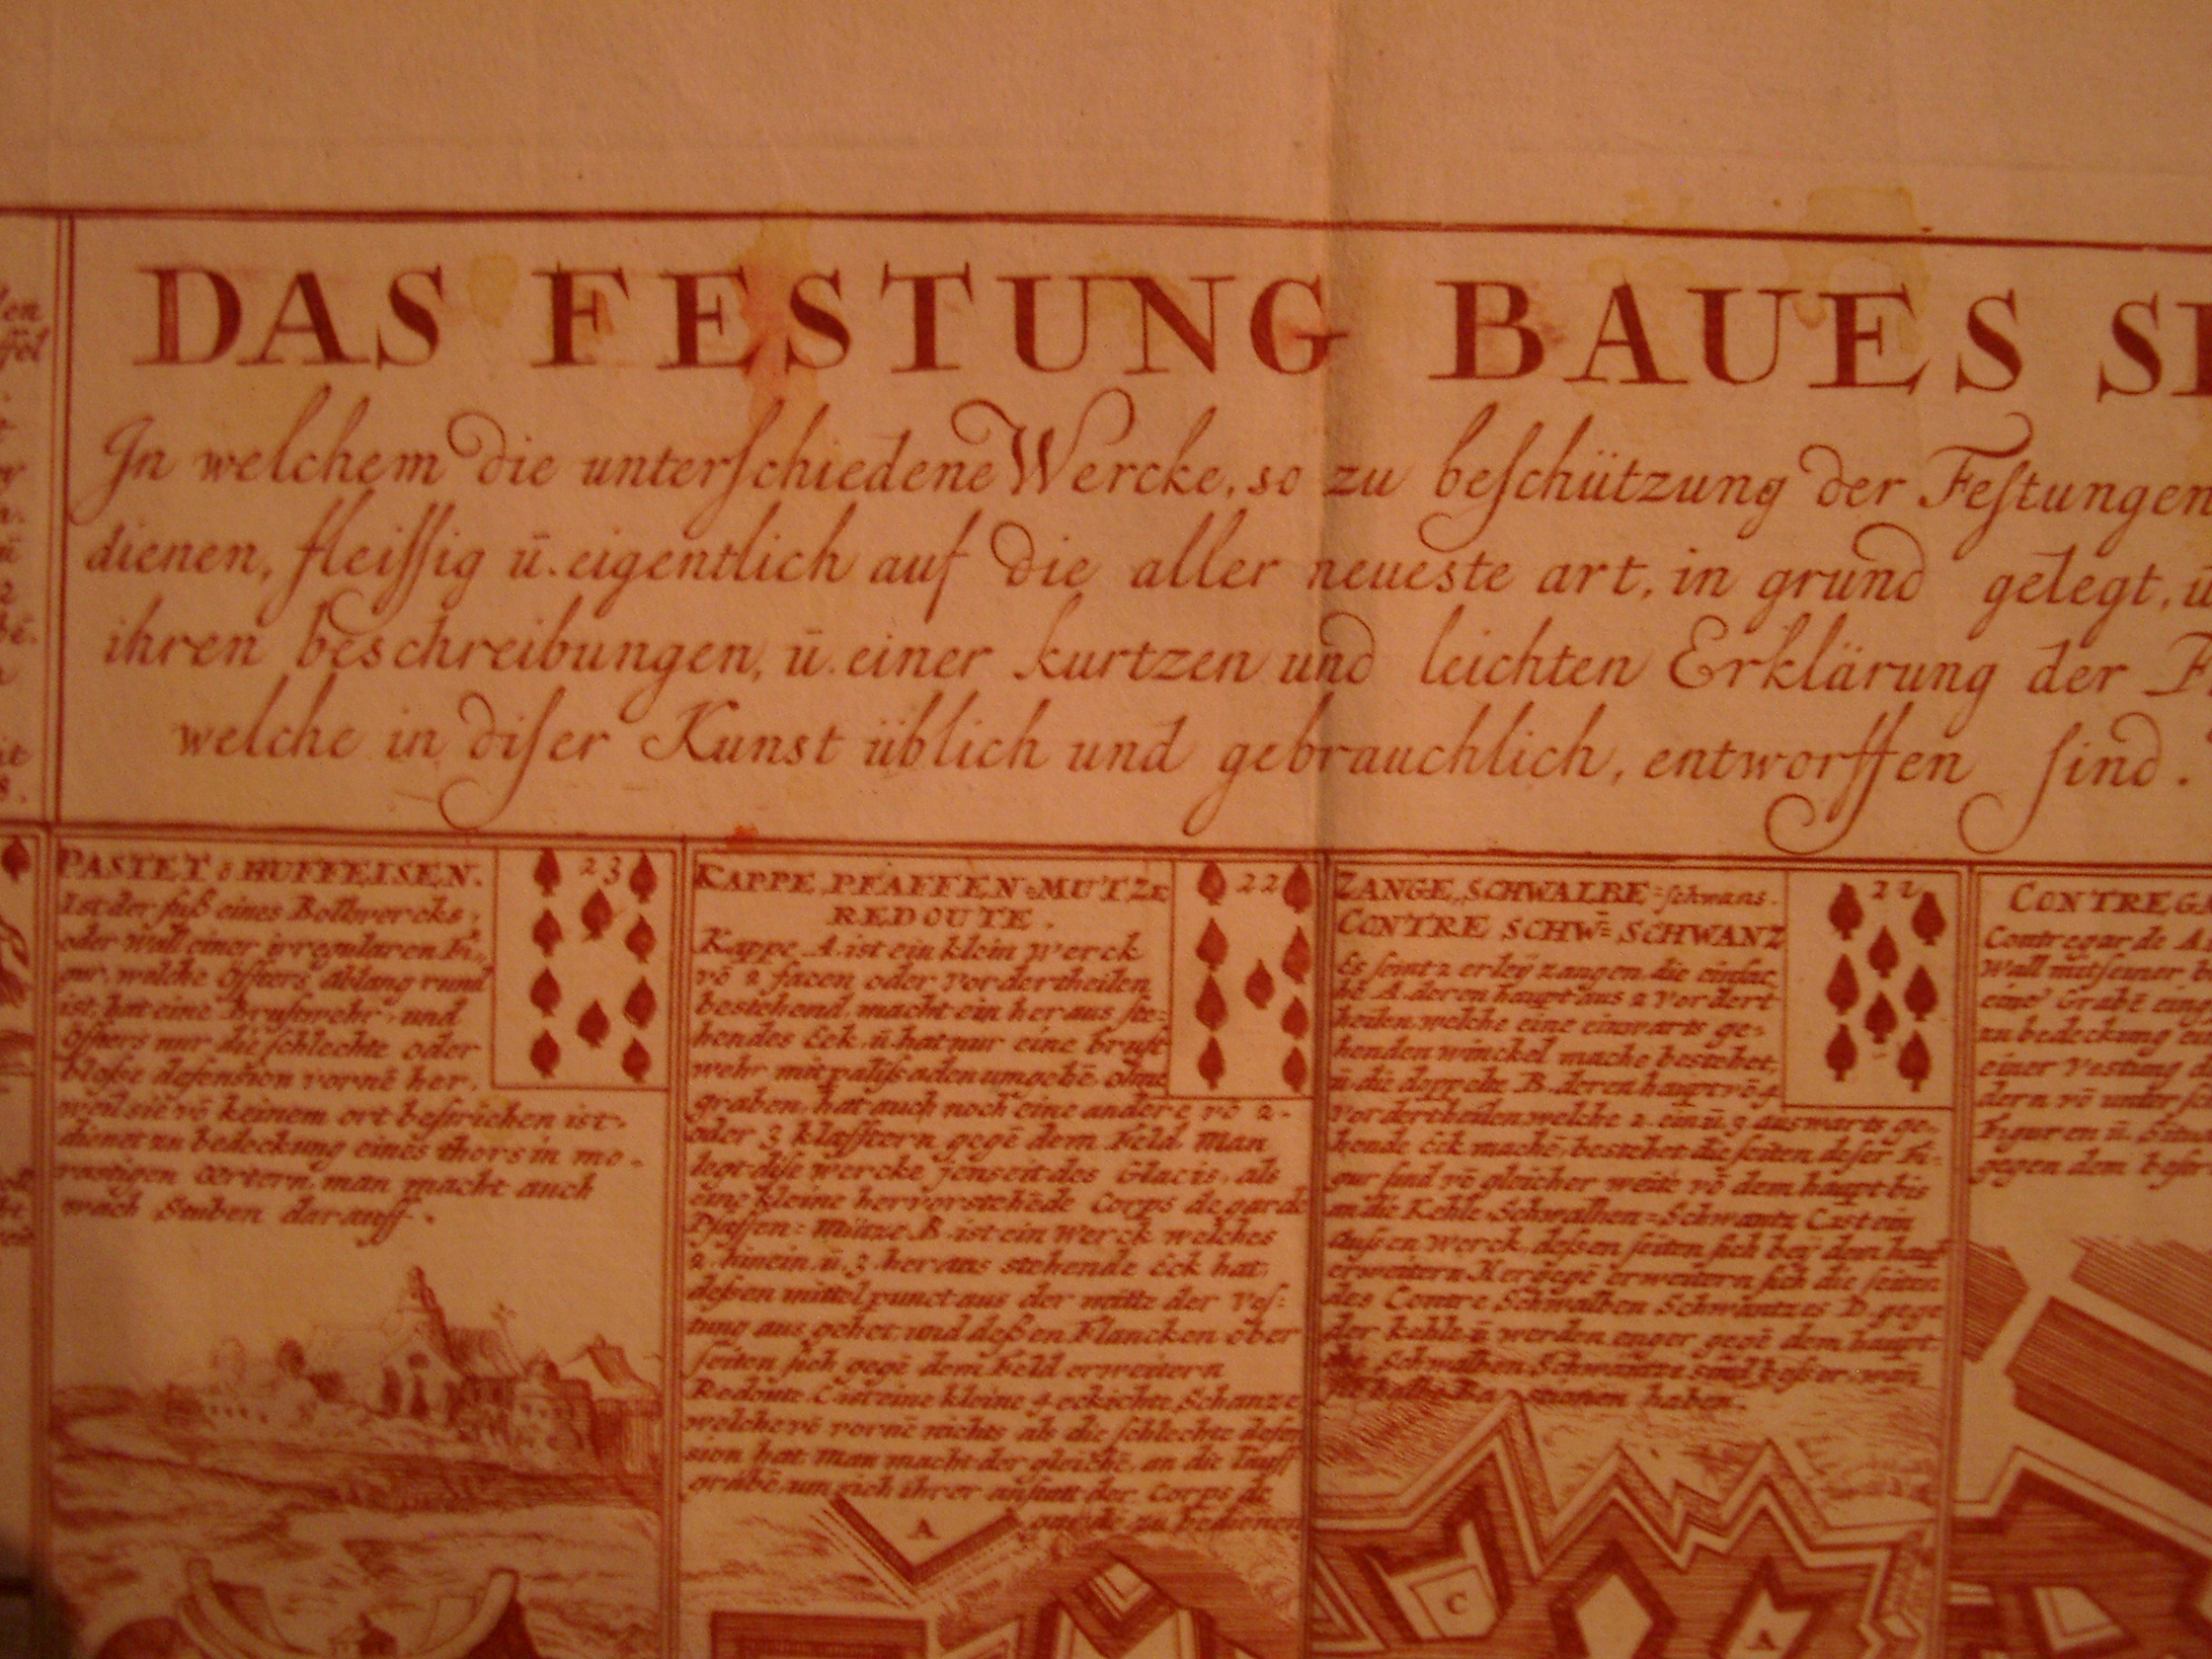 DAS FESTUNG BAUES
In welchem die unterſchiedene Wercke, so zu beſchützung der Feſtungen
dienen, fleiſſig ū. eigentlich auf die aller neueste art, in grund gelegt, ū
ihren beschreibungen, ū. einer kurtzen und leichten Erklärung der
welche in diſer Kunst üblich und gebrauchlich, entworffen ſind.
PASTET ō HUFFEISEN.
23
Ist der fuß eines Bollwercks,
oder Wall einer irregularen Fi-
gur, welche öffters ablang rund
ist, hat eine Bruſtwehr, und
öffters nur die ſchlechte oder
bloße defension vornē her,
weil sie vō keinem ort beſtrichen ist.
dienet zu bedeckung eines thors in mo-
rastigen œrtern, man macht auch
wach Stuben darauff.
KAPPE PFAFFEN-MUTZE
REDOUTE.
22
Kappe A. ist ein klein Werck
vō 2 facen oder Vordertheilen
bestehend, macht ein her aus ſte-
hendes Eck, ū hat nur eine bruſt
wehr mit paliſsaden umgebē ohne
graben, hat auch noch eine andere vō 2.
oder 3 klafftern gegē dem Feld. Man
legt diſe wercke jenseit des Glacis, als
eine kleine hervorstehēde Corps de garde
Pfaffen=Mütze B. ist ein Werck welches
2. hinein ū. 3. heraus stehende Eck hat,
deſsen mittel punct aus der mitte der Veſ-
tung aus gehet, und deßen Flancken ober
ſeiten ſich gegē dem Feld erweitern
Redoute C ist eine kleine 4 eckichte Schanze
welche vō vornē nichts als die ſchlechte defen
sion hat. Man macht der gleichē, an die lauff
gräbē um sich ihrer anſtatt der Corps de
garde zu bedienen
ZANGE, SCHWALBE=ſchwans.
CONTRE SCHW= SCHWANZ
Es ſeint 2 erleÿ zangen, die einfac
hē A. deren haupt aus 2 Vordert-
heilen welche eine einwarts ge-
henden winckel mache bestehet,
ū. die doppelte B. deren haupt vō 4
Vordertheilen welche 2. ein ū. 3 auswarts ge-
hende Eck machē, bestehet die ſeiten deſer Fi-
gur ſind vō gleicher weite vō dem haupt bis
an die Kehle Schwalben=Schwantz C ist ein
auſsen Werck, deſsen ſeiten ſich beÿ dem haupt
erweitern Hergegē erweitern ſich die ſeiten
des Contre Schwalben Schwantzes D. gegē
der kehle ū werden enger gegē dem haupt
die Schwalben Schwäntze sind beſser wan
haben.
Contregarde
Wall mit ſeiner
eine Grabē
zu bedeckung
einer Vestung
dern vō
Figuren ū.
gegen dem
A
C
A